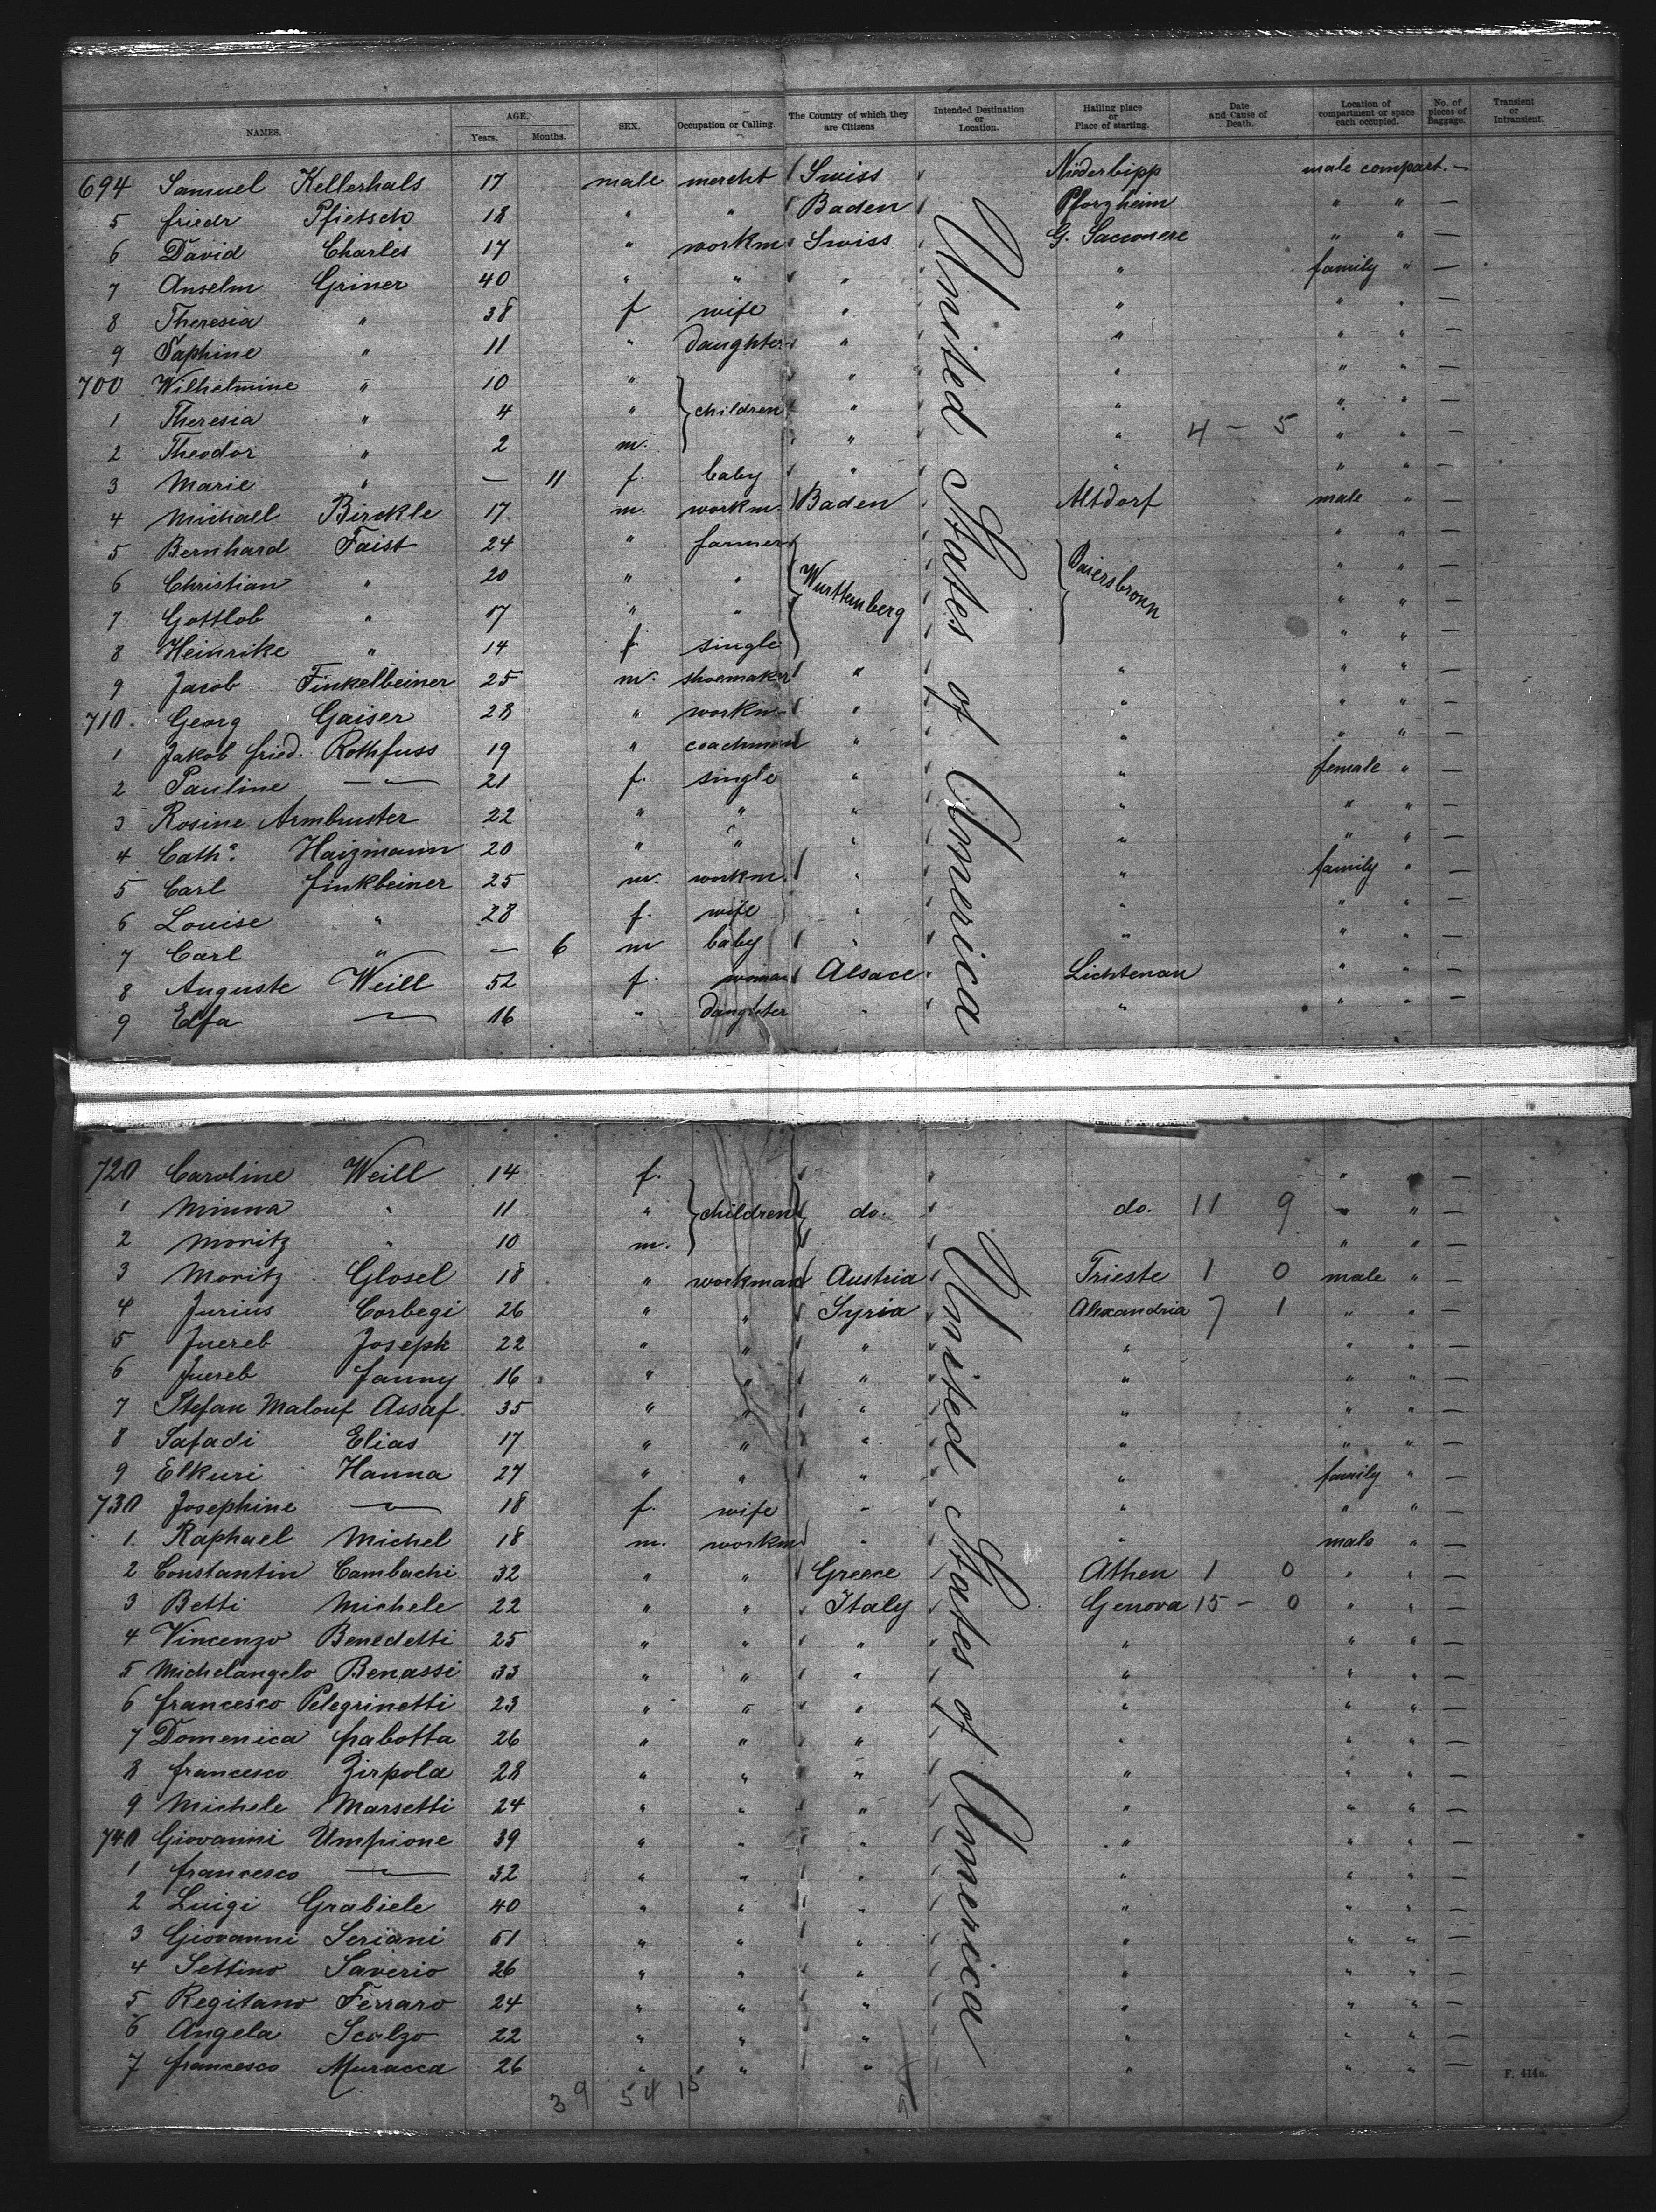 NAMES. AGE. Years. Months. SEX. Occupation or Calling. The Country of which they are Citizens Intended Destination or Location. Hailing place or Place of starting. Date and Cause of Death. Location of compartment or space each occupied. No. of pieces of Baggage. Transient or Intransient.
694 Samuel Kellerhals 17 male mercht Swiss Niederbipp male compart. —
5 friedr Pfietsch 18 " " Baden Pforzheim " " —
6 David Charles 17 " workm Swiss G. " " —
7 Anselm Griner 40 " " " " family " —
8 Theresia " 38 f wife " " " " —
9 Saphine " 11 " daughter " " " " —
700 Wilhelmine " 10 " " " " " —
1 Theresia " 4 " children " " " " —
2 Theodor " 2 m. " " 4 – 5 " " —
3 Marie " — 11 f. baby " " " " —
4 Michael Birckle 17 m. workm. Baden Altdorf male " —
5 Bernhard Faist 24 " farmer " " —
6 Christian " 20 " " Wurttemberg Baiersbronn " " —
7 Gottlob " 17 " " " " —
8 Heinrike " 14 f single " " —
9 Jacob Finkelbeiner 25 m. shoemaker " " " " —
710. Georg Gaiser 28 " workm " " " " —
1 Jakob fried. Rothfuss 19 " coachman " " " " —
2 Pauline —"— 21 f. single " " female " —
3 Rosine Armbruster 22 " " " " " " —
4 Cathᵃ. Haizmann 20 " " " " " " —
5 Carl Finkbeiner 25 m. workm. " " family " —
6 Louise " 28 f. wife " " " " —
7 Carl " — 6 m baby " " " " —
8 Auguste Weill 52 f. woman Alsace Lichtenau " " —
9 Elfa —"— 16 " daughter " " " " —
United States of America
720 Caroline Weill 14 f. " " —
1 Minna " 11 " children do. do. 11 9 " " —
2 Moritz " 10 m. " " —
3 Moritz Glosel 18 " workman Austria Trieste 1 0 male " —
4 Jurius Corbegi 26 " " Syria Alexandria 7 1 " " —
5 Juereb Joseph 22 " " " " " " —
6 Juereb fanny 16 " " " " " " —
7 Stefan Malouf Assaf. 35 " " " " " " —
8 Safadi Elias 17 " " " " " " —
9 Elkuri Hanna 27 " " " " family " —
730 Josephine —"— 18 f. wife " " " " —
1. Raphael Michel 18 m. workm " " male " —
2 Constantin Cambachi 32 " " Greece Athen 1 0 " " —
3 Betti Michele 22 " " Italy Genova 15 – 0 " " —
4 Vincenzo Benedetti 25 " " " " " " —
5 Michelangelo Benassi 33 " " " " " " —
6 francesco Pelegrinetti 23 " " " " " " —
7 Domenica frabotta 26 " " " " " " —
8 francesco Zirpola 28 " " " " " " —
9 Michele Marsetti 24 " " " " " " —
740 Giovanni Umpione 39 " " " " " " —
1 francesco —"— 32 " " " " " " —
2 Luigi Grabiele 40 " " " " " " —
3 Giovanni Seriani 51 " " " " " " —
4 Settino Saverio 26 " " " " " " —
5 Regitano Ferraro 24 " " " " " " —
6 Angela Scalzo 22 " " " " " " —
7 francesco Muracca 26 " " " " " " —
United States of America
39 54 15
F. 414a.